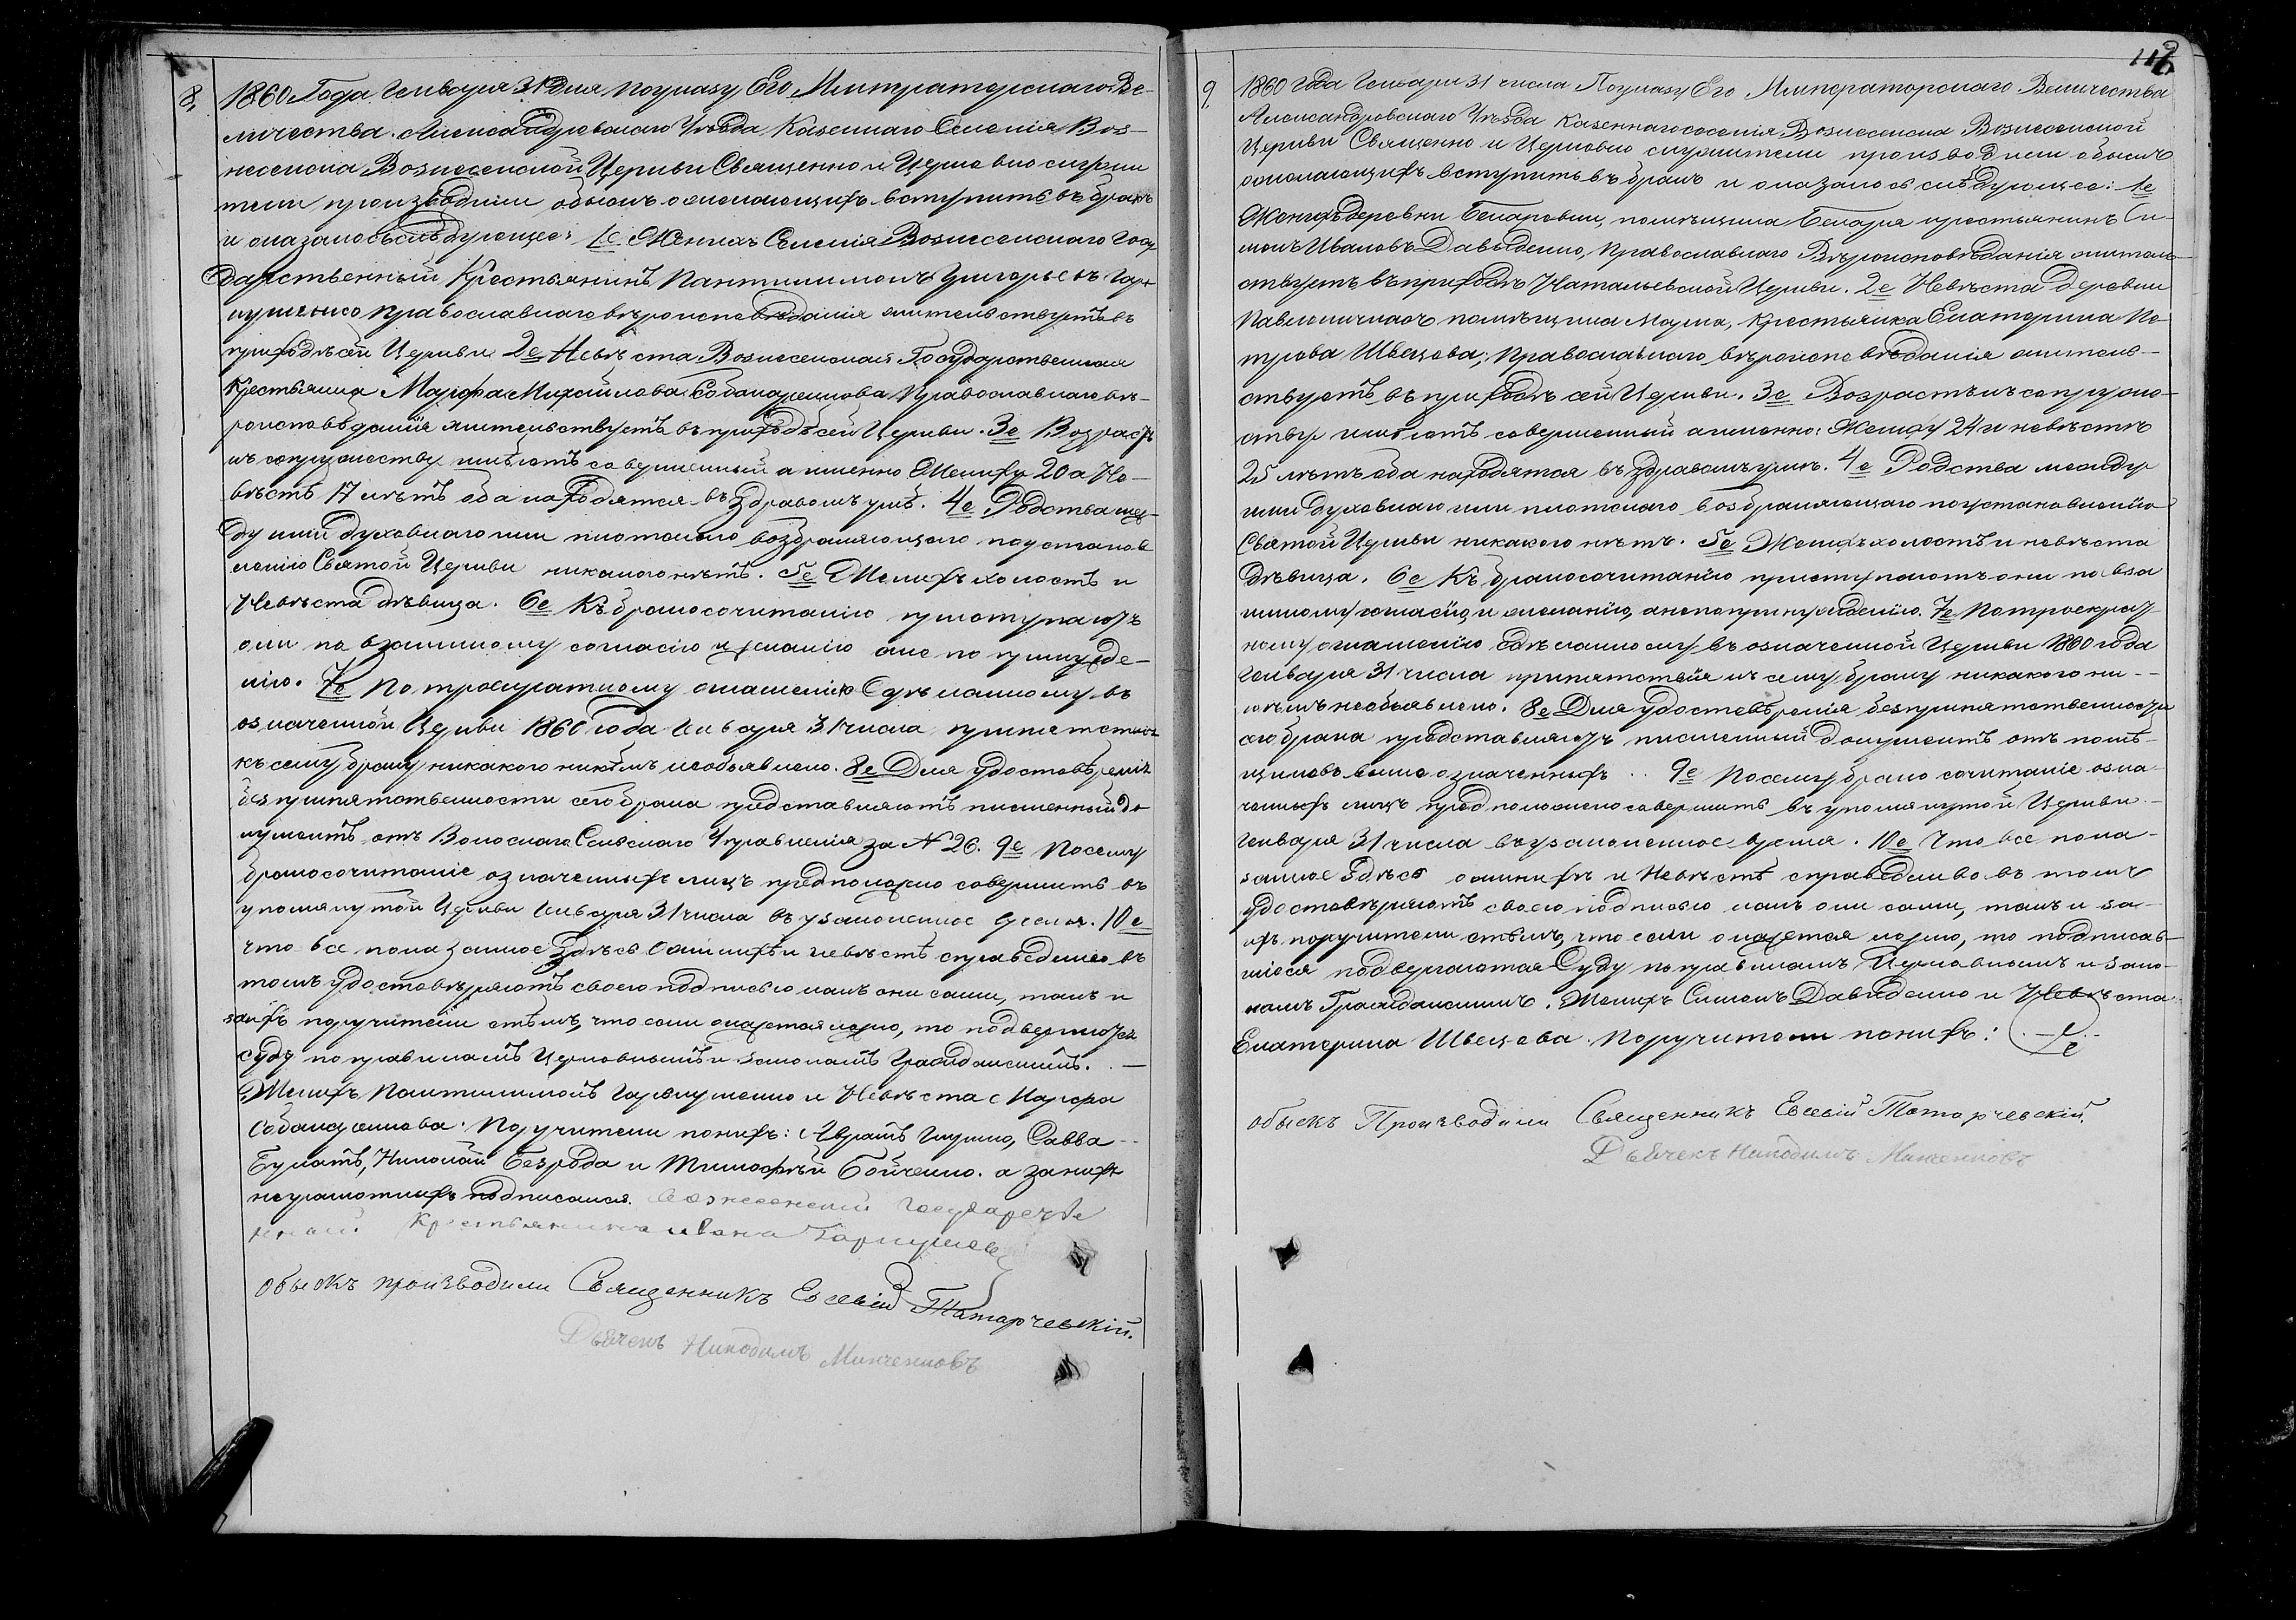 8,
1860 Года Генваря 31 Дня, по указу Его Императорскаго Ве-
личества. Александровскаго Уѣзда Казеннаго Селенія Воз-
несенска Вознесенской Церкви Священно и Церковно служи
тели производили обыскъ о желающихъ вступить въ бракъ
и оказалось слѣдующее: 1е Женихъ Селенія Вознесенскаго Госу
дарственный Крестьянинъ Пантилимонъ Григорьевъ Гар-
кушенко Православнаго вѣроисповѣданія жительствуетъ въ
приходѣ сей Церкви 2е Невѣста Вознесенская Государственная
Крестьянка Марфа Михайлова Православнаго вѣ-
роисповѣданія жительствуетъ въ приходѣ сей Церкви. 3е Возрастъ
къ супружеству имѣютъ совершенный а именно Женихъ 20 а Не-
вѣстѣ 17 лѣтъ оба находятся въ здравомъ умѣ. 4е Родства меж-
ду ими духовнаго или плотскаго возбраняющаго по установ
ленію Святой Церкви никакого нѣтъ. 5е Женихъ холостъ и
Невѣста дѣвица. 6е Къ бракосочитанію приступаютъ
они по взаимному согласію и желанію а не по принужде-
нію. 7е По троекратному оглашенію сдѣланному въ
означенной Церкви 1860 года Генваря 31 числа препятствія
къ сему браку никакого никѣмъ необъявлено. 8е Для удостовѣренія
безпрепятственности сего брака представляютъ письменный до
кументъ отъ Волоснаго Сельскаго Управленія за N 26. 9е Посему
бракосочитаніе означенныхъ лицъ предположено совершить въ
упомянутой Церкви Генваря 31 числа въ узаконенное время. 10е
что все показанное здѣсь о женихѣ и невѣстѣ справедливо въ
томъ удостовѣряютъ своею подписью какъ они сами, такъ и
за ихъ поручители стѣмъ, что если окажется ложно, то подвергаются
суду по правиламъ Церковнымъ и законамъ Гражданскимъ.
Женихъ Пантилимонъ Гаркушенко и Невѣста Марфа
Поручители по нихъ: Аврамъ Глушко, Савва
Булатъ, Николай Безрода и Тимофѣй Бойченко. а за нихъ
неграмотныхъ подписался Вознесенский Государстве
нной Крестьянинъ Ивана
обыскъ производили Священникъ Евсевій Татарчевскій.
Дьячекъ Никодимъ Минченковъ
9.
1860 Года Генваря 31 числа По указу Его Императорскаго Величества
Александровскаго Уѣзда Казеннаго селенія Вознесенска Вознесенской
Церкви Священно и Церковно служители производили обыскъ
о желающихъ вступить въ бракъ и оказалось слѣдующее: 1е
Женихъ деревни помѣщика крестьянинъ Си-
монъ Ивановъ Давыденко, Православнаго Вѣроисповѣданія житель-
ствуетъ въ приходѣ Натальевской Церкви. 2е Невѣста деревни
помѣщика Крестьянка Екатерина Пе-
трова Швецова, Православнаго вѣроисповѣданія житель-
ствуетъ въ приходѣ сей Церкви. 3е Возрастъ къ супруже-
ству имѣютъ совершенный а именно: Жениху 24 и невѣстѣ
25 лѣтъ оба находятся въ здравомъ умѣ. 4е Родства между
ими духовнаго или плотскаго возбраняющаго по установленію
Святой Церкви никакого нѣтъ. 5е Женихъ холостъ и невѣста
дѣвица. 6е Къ бракосочитанію приступаютъ они по вза
имному согласію и желанію, а не по принужденію. 7е По троекрат-
ному оглашенію сдѣланному въ означенной Церкви 1860 года
Генваря 31 числа препятствія къ сему браку никакого ни-
кѣмъ необъявлено. 8е Для удостовѣренія безпрепятственности
сего брака представляютъ письменный документъ отъ помѣ-
щиковъ выше означенныхъ. 9е Посему бракосочитаніе озна-
ченныхъ лицъ предположено совершить въ упомянутой Церкви
Генваря 31 числа въ узаконенное время. 10е Что все пока-
занное здѣсь о женихѣ и Невѣстѣ справедливо въ томъ
удостовѣряютъ своею подписью какъ они сами, такъ и за-
ихъ поручители стѣмъ, что если окажется ложно, то подписав-
шіеся подвергаются Суду по правиламъ Церковнымъ и зако-
намъ Гражданскимъ. Женихъ Симонъ Давиденко и Невѣста
Екатерина Швецова. Поручители по нихъ:
обыскъ Производили Священникъ Евсевій Татарчевскій.
Дьячекъ Никодимъ Минченковъ